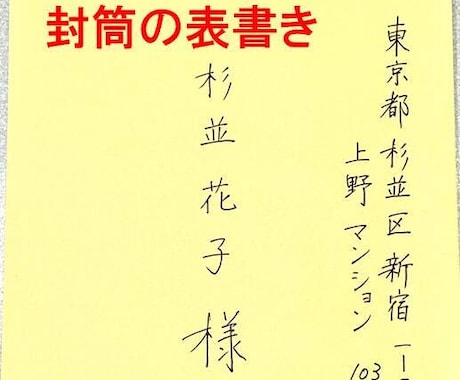 封筒の表書き
東京都杉並区新宿一ー
上野マンション103
杉並花子様